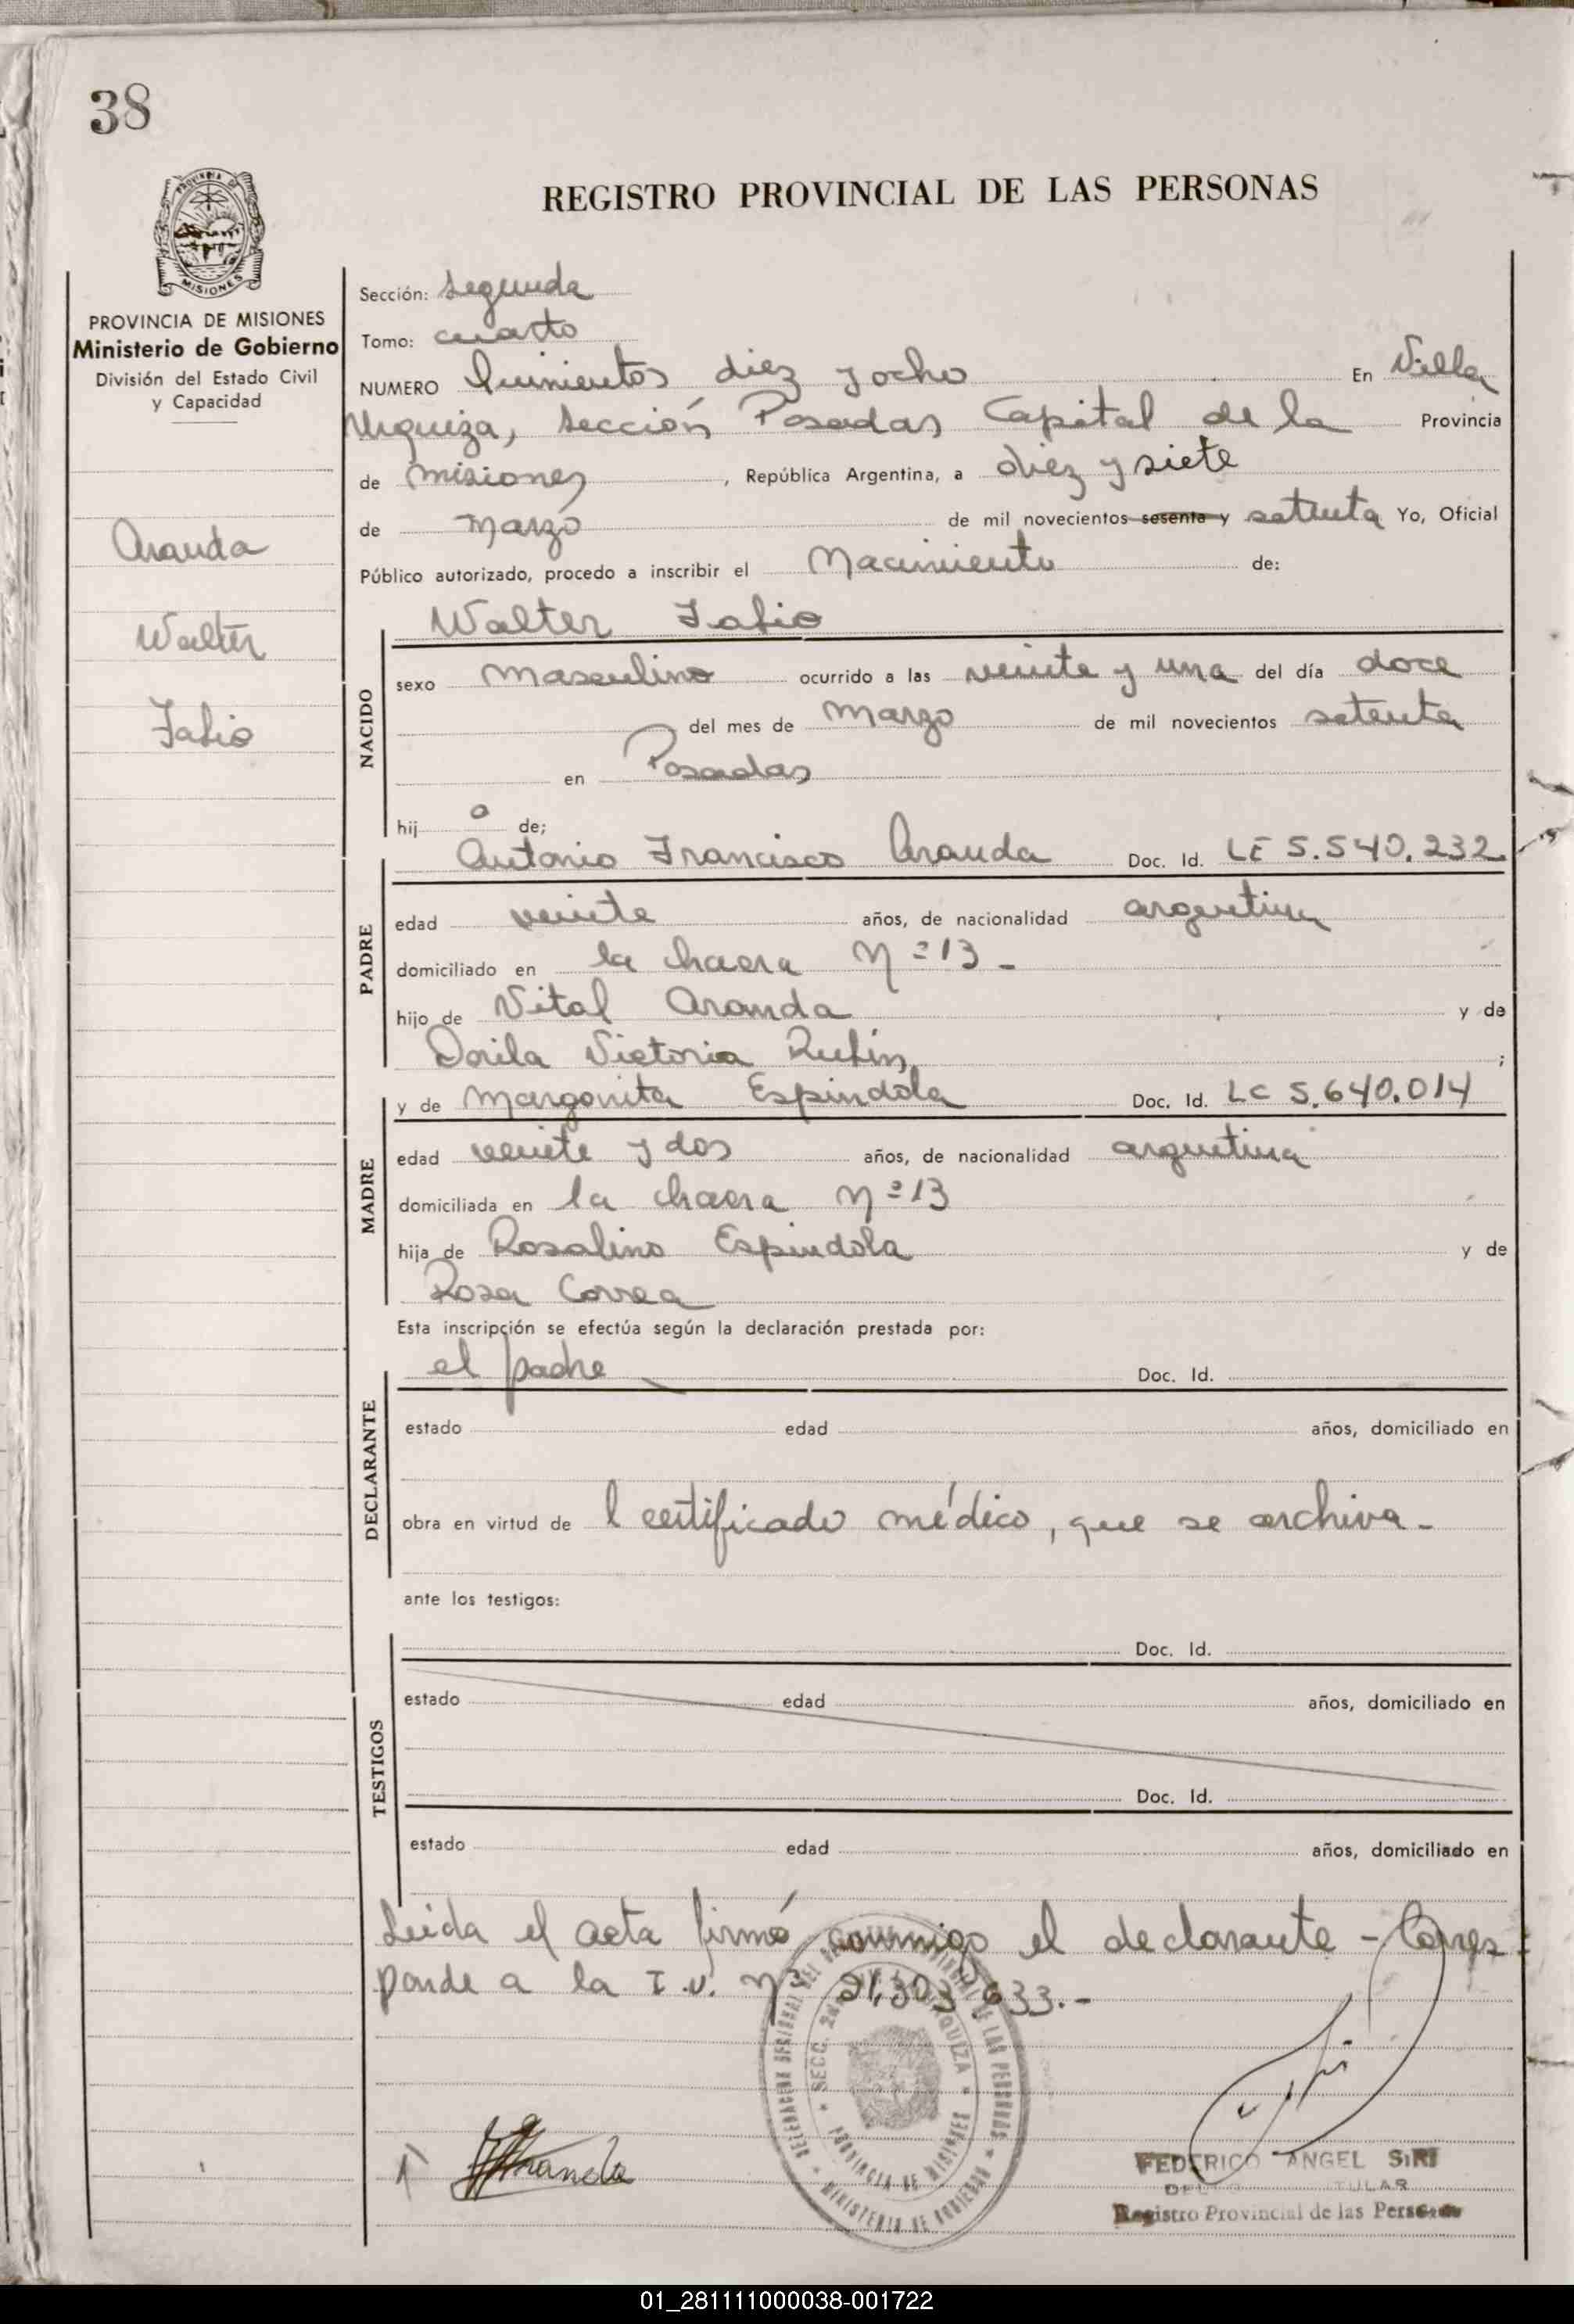 38
REGISTRO PROVINCIAL DE LAS PERSONAS
PROVINCIA DE
MISIONES
PROVINCIA DE MISIONES
Ministerio de Gobierno
División del Estado Civil
y Capacidad
Aranda
Walter
Fabio
Sección: Segunda
Tomo: cuarto
NUMERO Quinientos diez y ocho En Villa
Urquiza, Sección Posadas Capital de la Provincia
de Misiones, República Argentina, a diez y siete
de Marzo de mil novecientos sesenta y setenta Yo, Oficial
Público autorizado, procedo a inscribir el Nacimiento de:
Walter Fabio
NACIDO
sexo Masculino ocurrido a las veinte y una del día doce
del mes de Marzo de mil novecientos setenta
en Posadas
hijo de;
PADRE
Antonio Francisco Aranda Doc. Id. LE 5.540.232.
edad veinte años, de nacionalidad argentina
domiciliado en la chacra Nº 13 -
hijo de Vital Aranda y de
Dorila Victoria ;
MADRE
y de Margarita Espindola Doc. Id. LC 5.640.014
edad veinte y dos años, de nacionalidad argentina
domiciliada en la chacra Nº 13
hija de Rosalino Espindola y de
Rosa Correa
Esta inscripción se efectúa según la declaración prestada por:
DECLARANTE
el padre Doc. Id.
estado edad años, domiciliado en
obra en virtud de l certificado médico, que se archiva.-
ante los testigos:
TESTIGOS
Doc. Id.
estado edad años, domiciliado en
Doc. Id.
estado edad años, domiciliado en
Leída el acta firmó conmigo el declarante - Corres-
ponde a la I.U. Nº 21.303.933.-
SECC. 2da URQUIZA
PROVINCIA DE MISIONES
MINISTERIO DE GOBIERNO
Aranda
FEDERICO ANGEL SIRI
TITULAR
Registro Provincial de las Personas
01_281111000038-001722